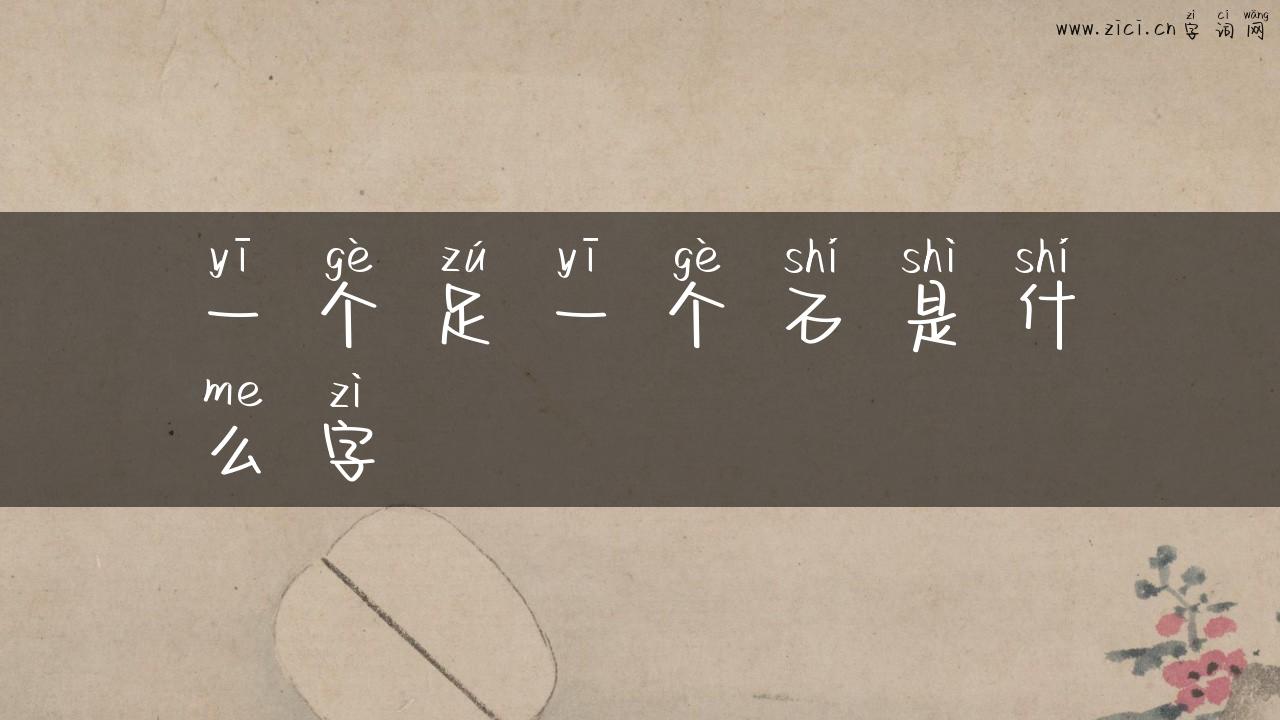 zì cí wǎng
www.zici.cn 字 词 网
yī gè zú yī gè shí shì shí
一 个 足 一 个 石 是 什
me zì
么 字